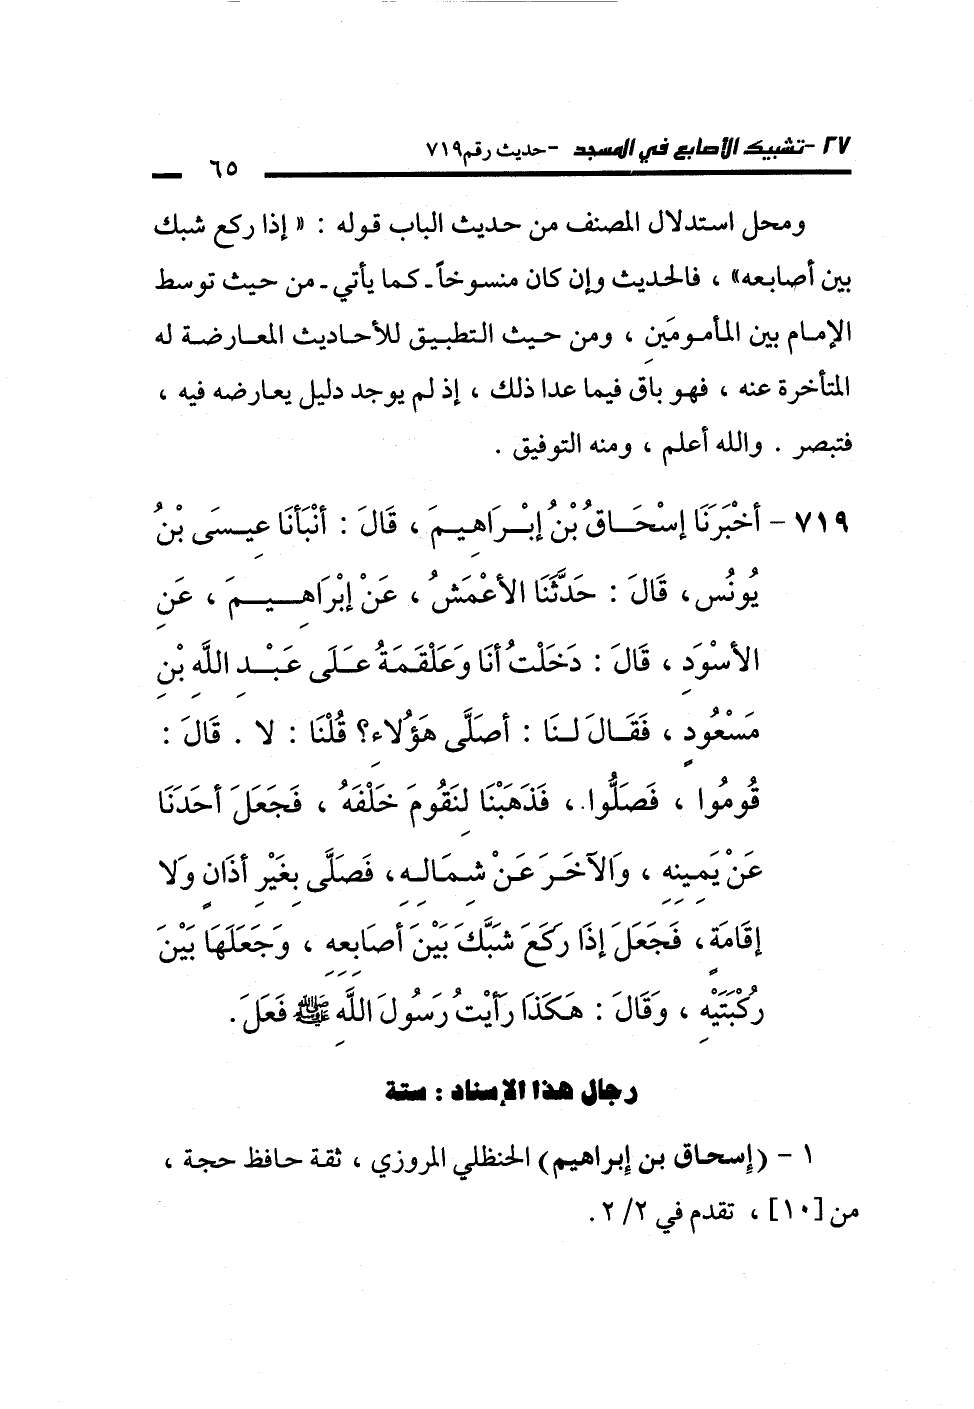 ٢٧- تشبيك الأصابع في المسجد - حديث رقم ٧١٩
٦٥
ومحل استدلال المصنف من حديث الباب قوله : « إذا ركع شبك
بين أصابعه» ، فالحديث وإن كان منسوخاً ـ كما يأتي ـ من حيث توسط
الإمام بين المأمومَينِ ، ومن حيث التطبيق للأحاديث المعارضة له
المتأخرة عنه ، فهو باق فيما عدا ذلك ، إذ لم يوجد دليل يعارضه فيه ،
فتبصر . والله أعلم ، ومنه التوفيق .
٧١٩ - أخْبَرَنَا إسْحَاقُ بْنُ إبْرَاهِيمَ ، قَالَ : أنْبَأنَا عِيسَى بْنُ
يُونُس، قَالَ : حَدَّثَنَا الأعْمَشُ ، عَنْ إبْرَاهِيمَ ، عَنِ
الأسْوَدِ ، قَالَ : دَخَلْتُ أنَا وَعَلْقَمَةُ عَلَى عَبْدِ اللَّهِ بْنِ
مَسْعُودٍ ، فَقَالَ لنَا : أصَلَّى هَؤُلاءِ؟ قُلْنَا : لا . قَالَ :
قُومُوا ، فَصَلُّوا ، فَذَهَبْنَا لِنَقُومَ خَلْفَهُ ، فَجَعَلَ أحَدَنَا
عَنْ يَمِينِهِ ، وَالآخَرَ عَنْ شِمَالِهِ، فَصَلَّى بِغَيْرِ أذَانٍ وَلا
إقَامَةٍ، فَجَعَلَ إذَا رَكَعَ شَبَّكَ بَيْنَ أصَابِعِهِ ، وَجَعَلَهَا بَيْنَ
رُكْبَتَيْهِ ، وَقَالَ : هَكَذَا رَأيْتُ رَسُولَ اللَّهِ ﷺ فَعَلَ.
رجال هذا الإسناد : ستة
١ - (إسحاق بن إبراهيم) الحنظلي المروزي ، ثقة حافظ حجة ،
من [١٠] ، تقدم في ٢/ ٢ .